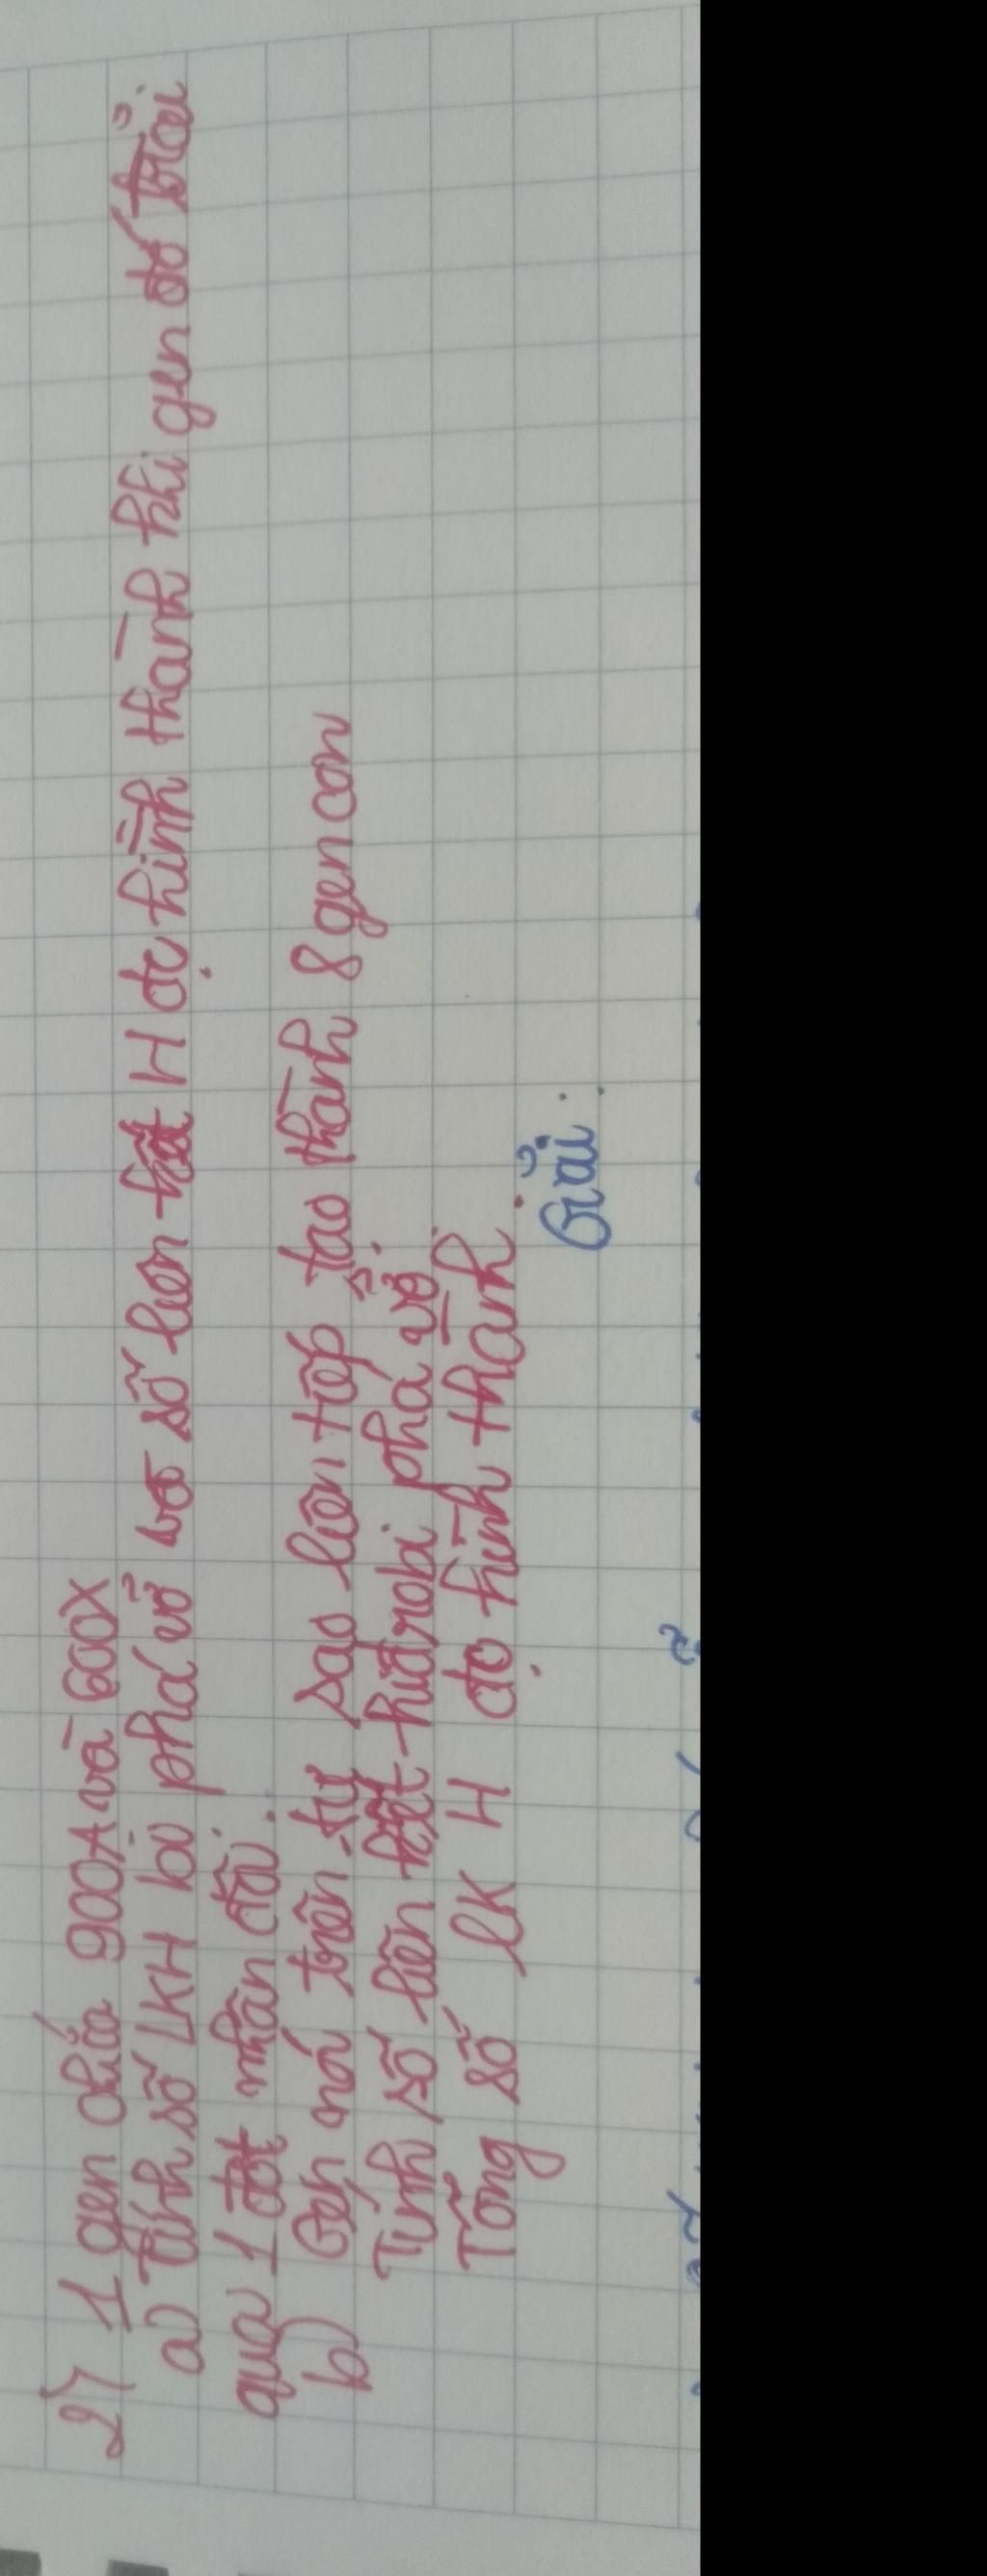 2) 1 gen chứa 900A và 600X
a) Tính số LKH bị phá vỡ và số liên kết H đc hình thành khi gen đó trải
qua 1 đợt nhân đôi.
b) Gen nói trên tự sao liên tiếp tạo thành 8 gen con
Tính số liên kết hidrobi phá vỡ
Tổng số lk H đc hình thành.
Giải: